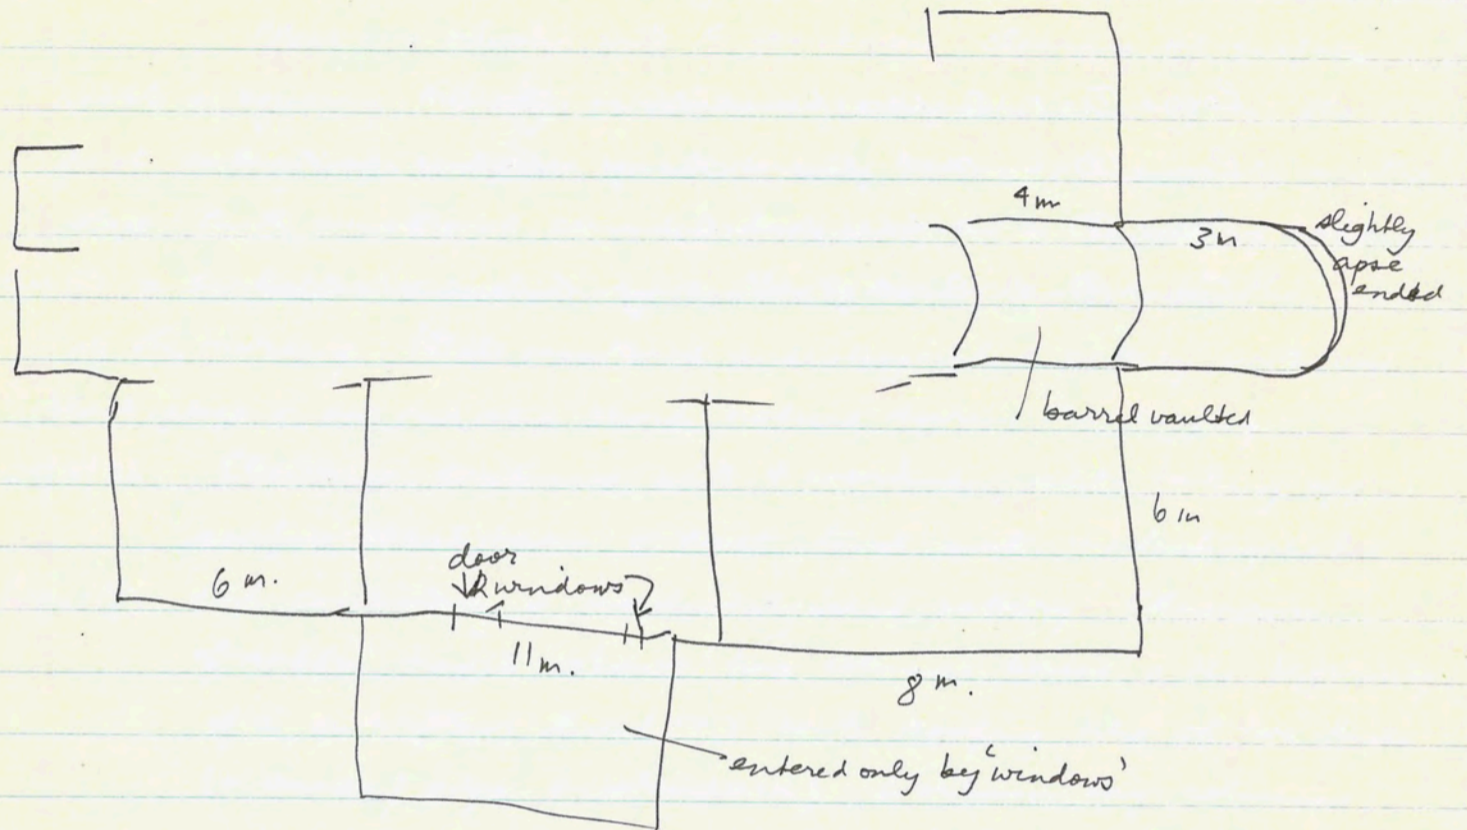 4 m
3 m
slightly
apse
ended
barrel vaulted
6 m
door
windows
6 m.
11 m.
8 m.
entered only by 'windows'